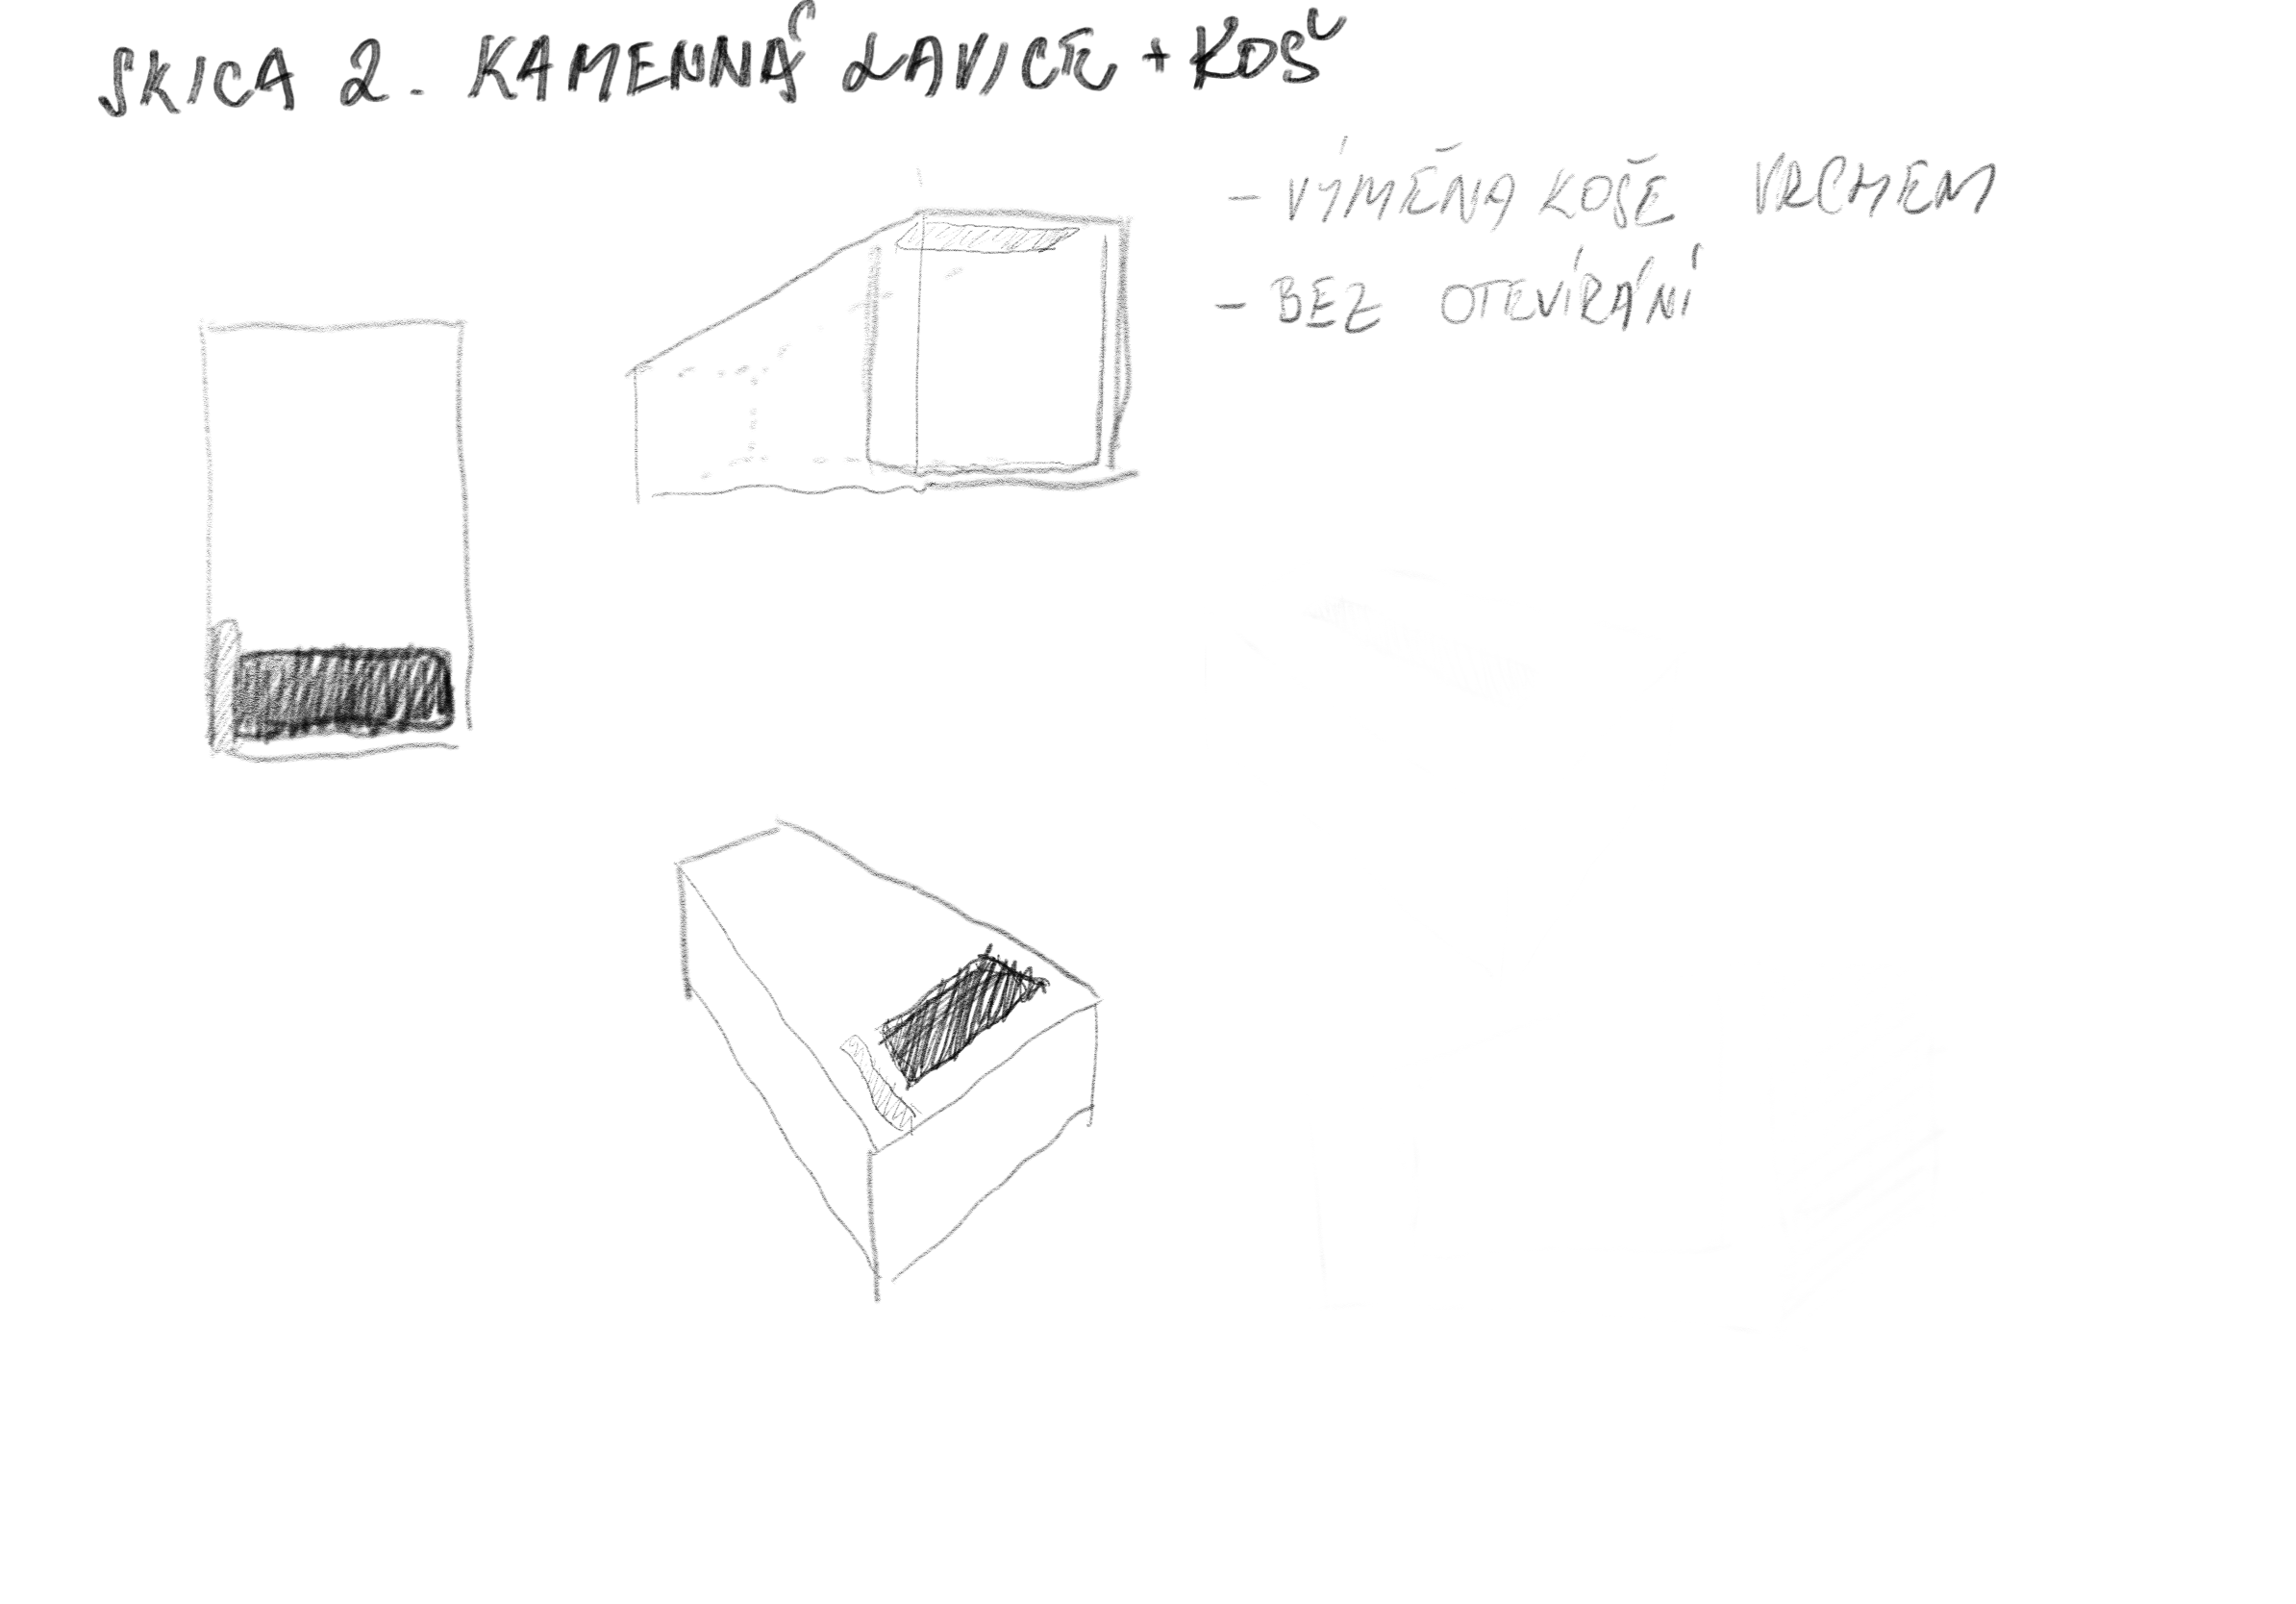 SKICA 2. KAMENNÁ LAVICE + KOŠ
- VÝMĚNA KOŠE VRCHEM
- BEZ OTEVÍRÁNÍ